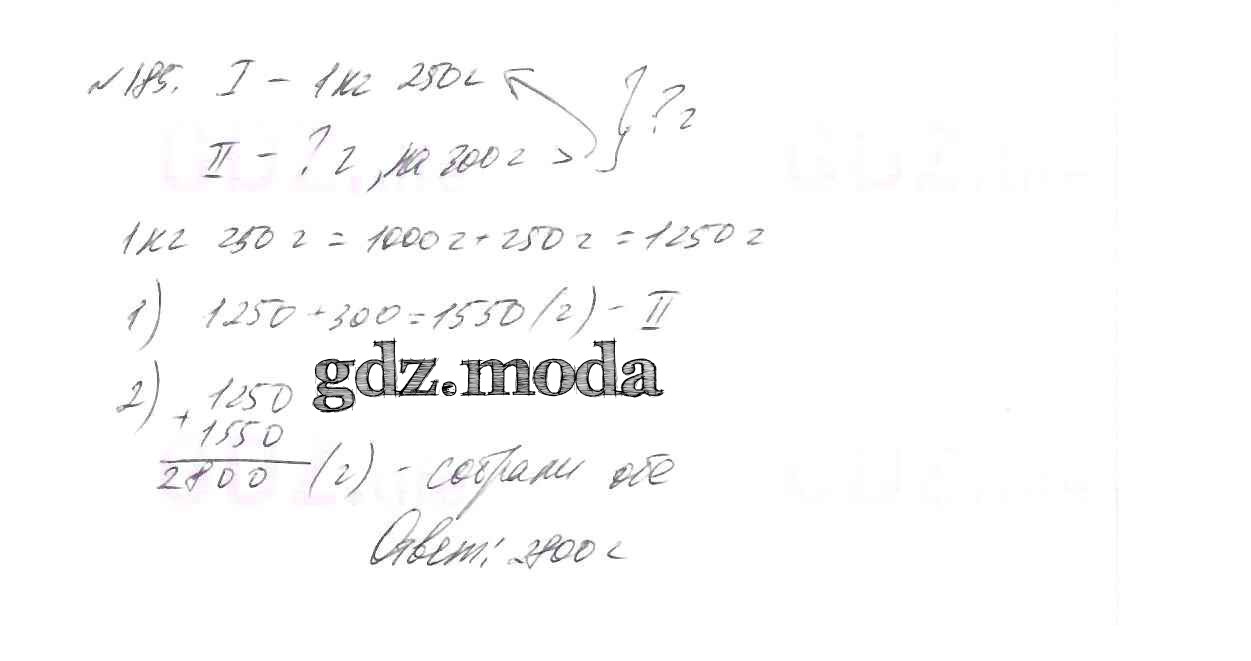 №185. I - 1кг 250г } ?г
II - ?г, на 300г >
1кг 250г = 1000г + 250г = 1250г
1) 1250 + 300 = 1550 (г) - II
gdz.moda
2) 1250
+ 1550
2800 (г) - собрали обе
Ответ: 2800г